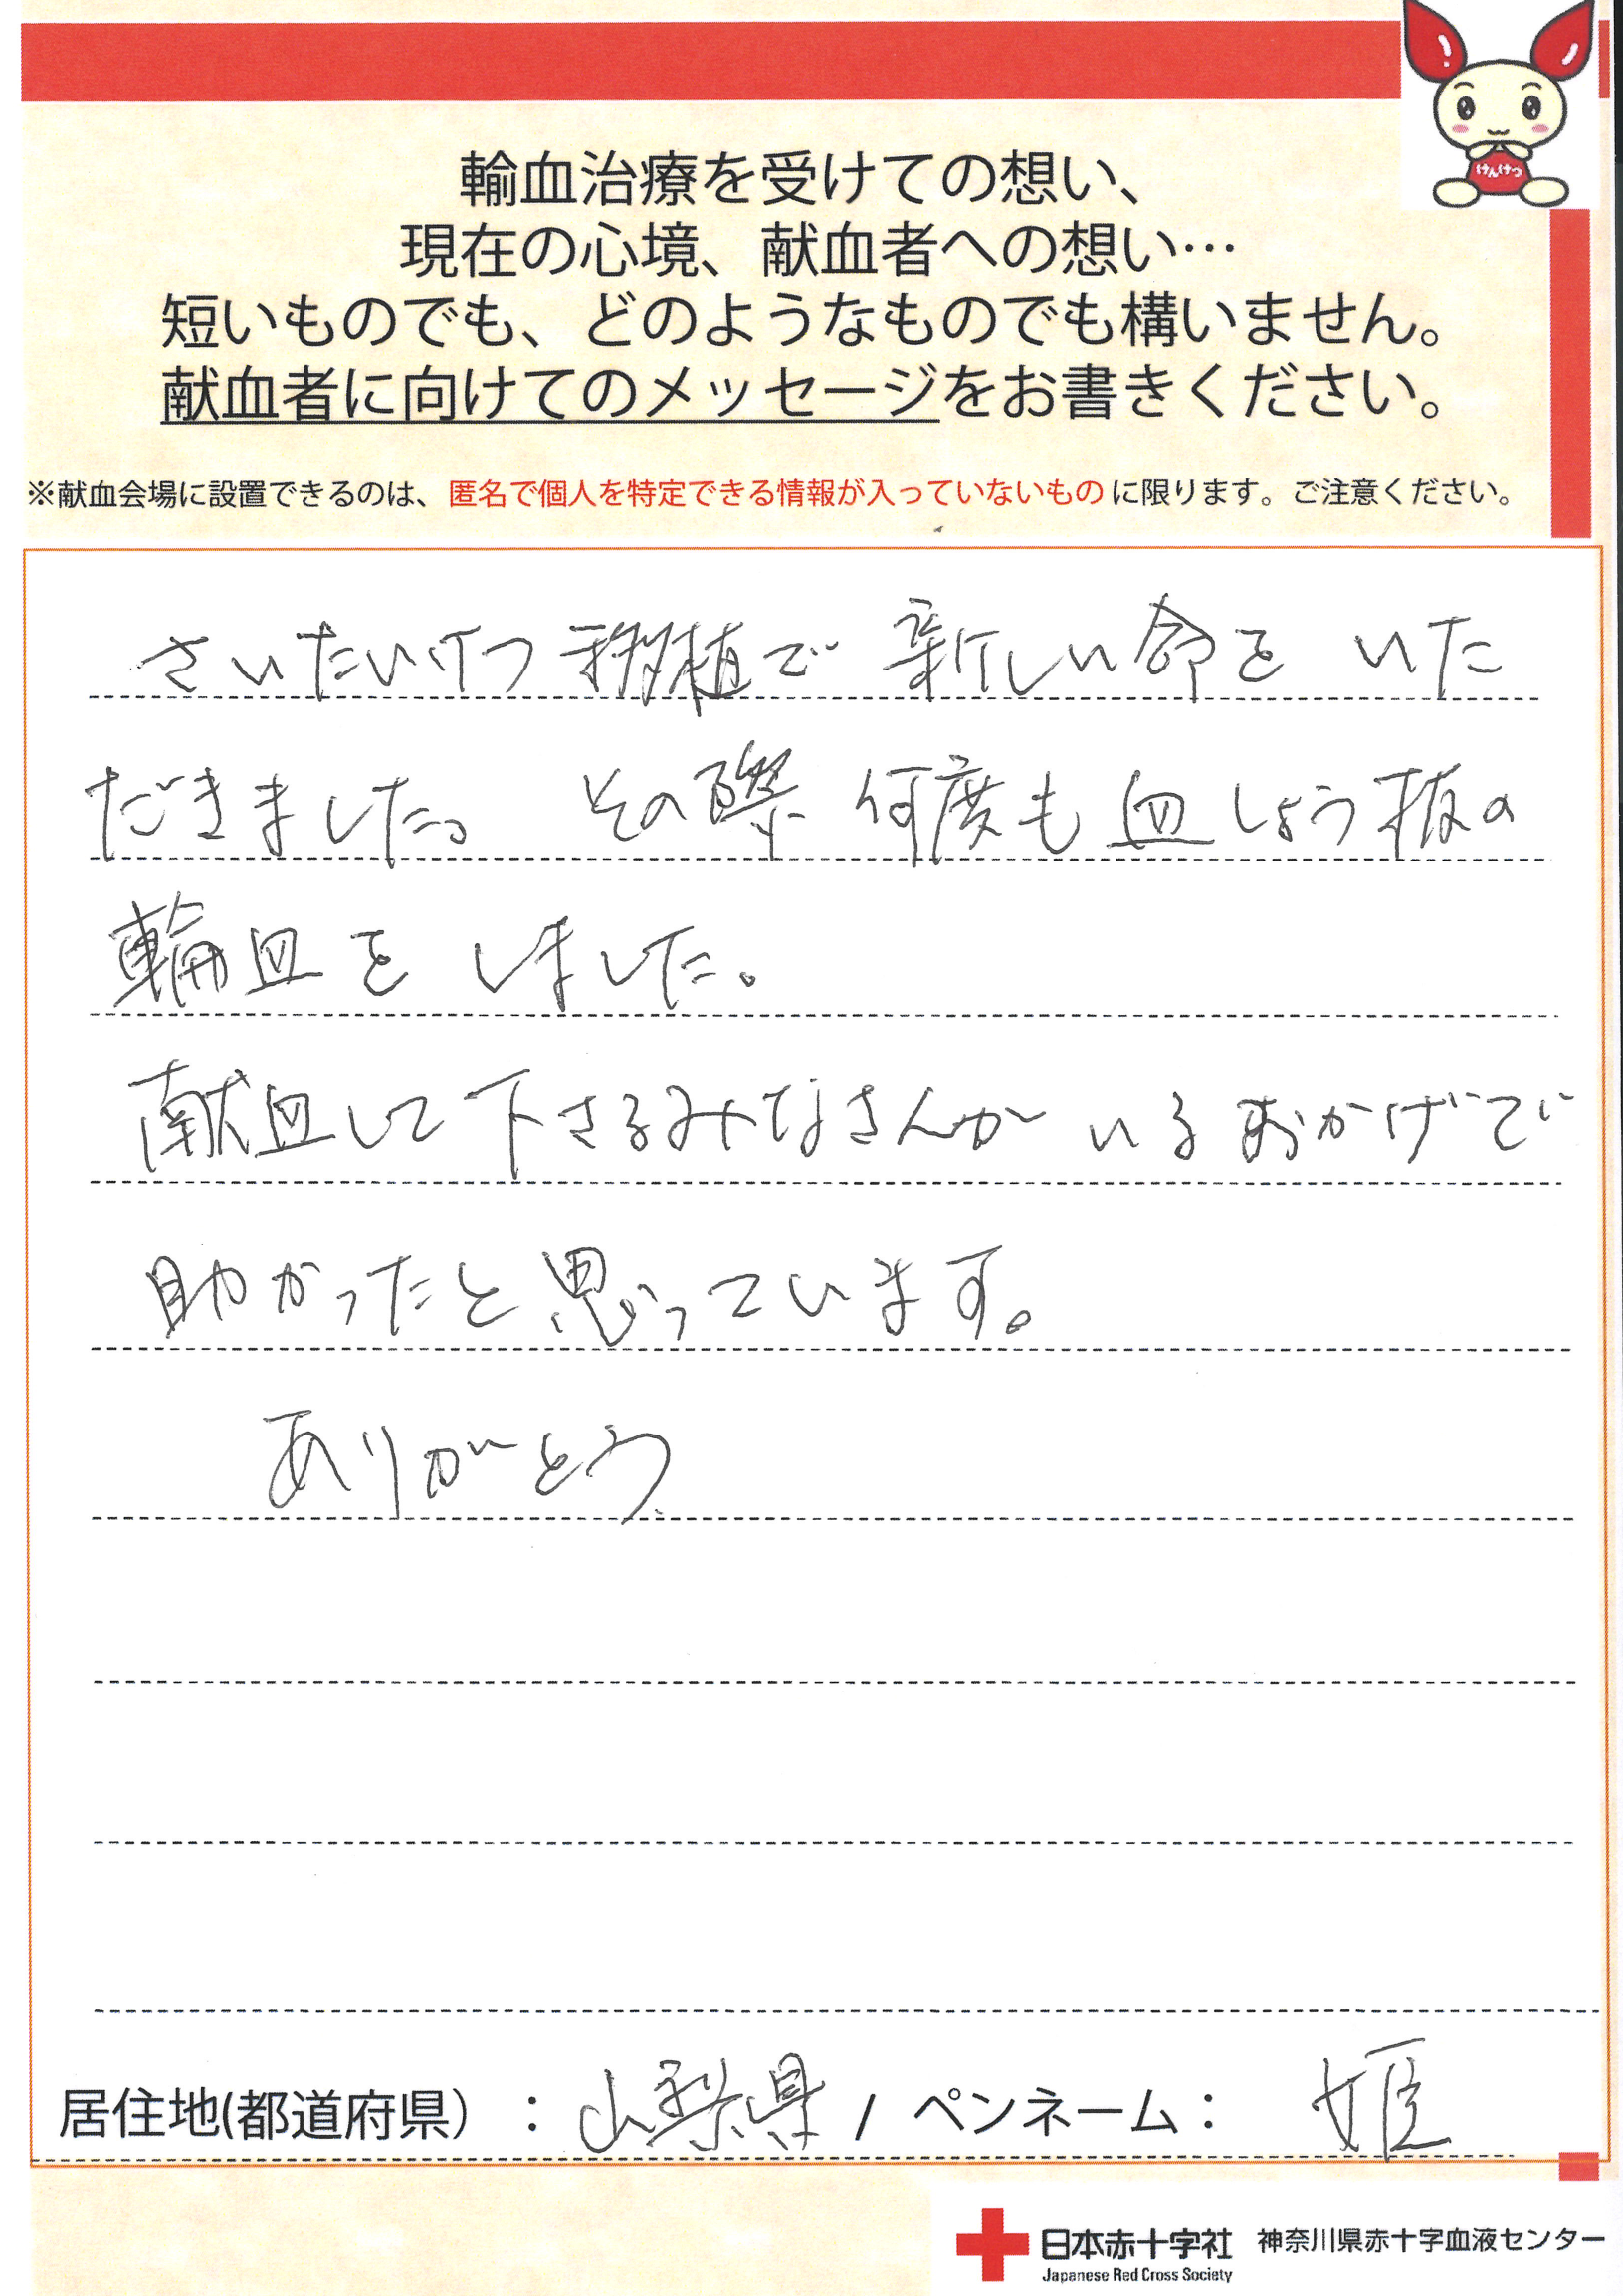 けんけつ
輸血治療を受けての想い、
現在の心境、献血者への想い…
短いものでも、どのようなものでも構いません。
献血者に向けてのメッセージをお書きください。
※献血会場に設置できるのは、匿名で個人を特定できる情報が入っていないものに限ります。ご注意ください。
さいたいけつ移植で 新しい命を いた
だきました。 その際 何度も血しょう板の
輸血を しました。
献血して下さるみなさんが いるおかげで
助かったと思っています。
ありがとう
居住地(都道府県）：山梨県 / ペンネーム： 姫
日本赤十字社 神奈川県赤十字血液センター
Japanese Red Cross Society